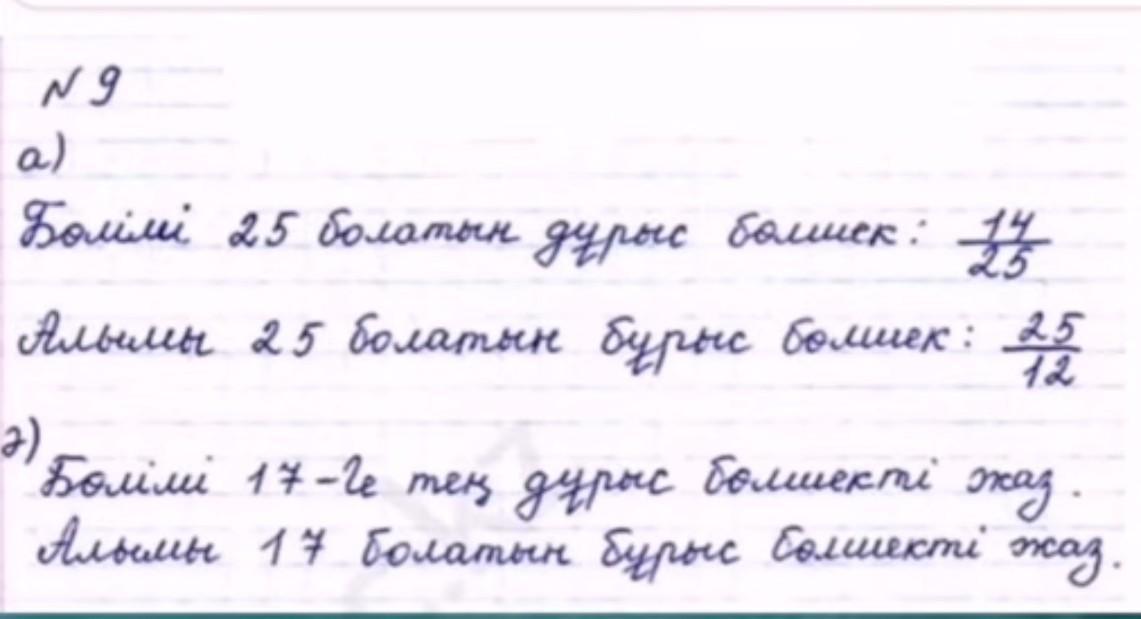 № 9
а)
Бөлімі 25 болатын дұрыс бөлшек: 14/25
Алымы 25 болатын бұрыс бөлшек: 25/12
ә)
Бөлімі 17-ге тең дұрыс бөлшекті жаз.
Алымы 17 болатын бұрыс бөлшекті жаз.